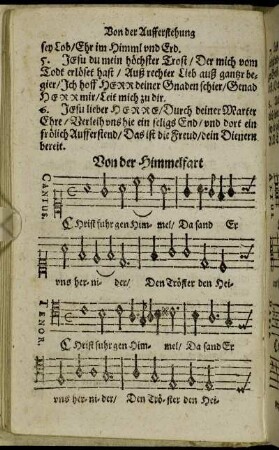 Von der Aufferstehung
sey Lob/Ehr im Himml vnd Erd.
5. JEsu du mein höchster Trost/ Der mich vom
Todt erlöset hast/ Auß rechter Lieb auß gantzr be-
gier/ Jch hoff HERR deiner Gnaden schier/ Genad
HERR mir/ Leit mich zu dir.
6. JEsu lieber HERRE/ Durch deiner Marter
Ehre/ Verleih vns hie ein seligs End/ vnd dort ein
frölich Aufferstend/ Das ist die Freud/ dein Dienern
bereit.
Von der Himmelfart
CANTUS.
CHrist fuhr gen Him- mel/ Da sand Er
vns her- ni- der/ Den Tröster den Hei-
TENOR.
CHrist fuhr gen Him- mel/ Da sand Er
vns her- ni- der/ Den Trö- ster den Hei-